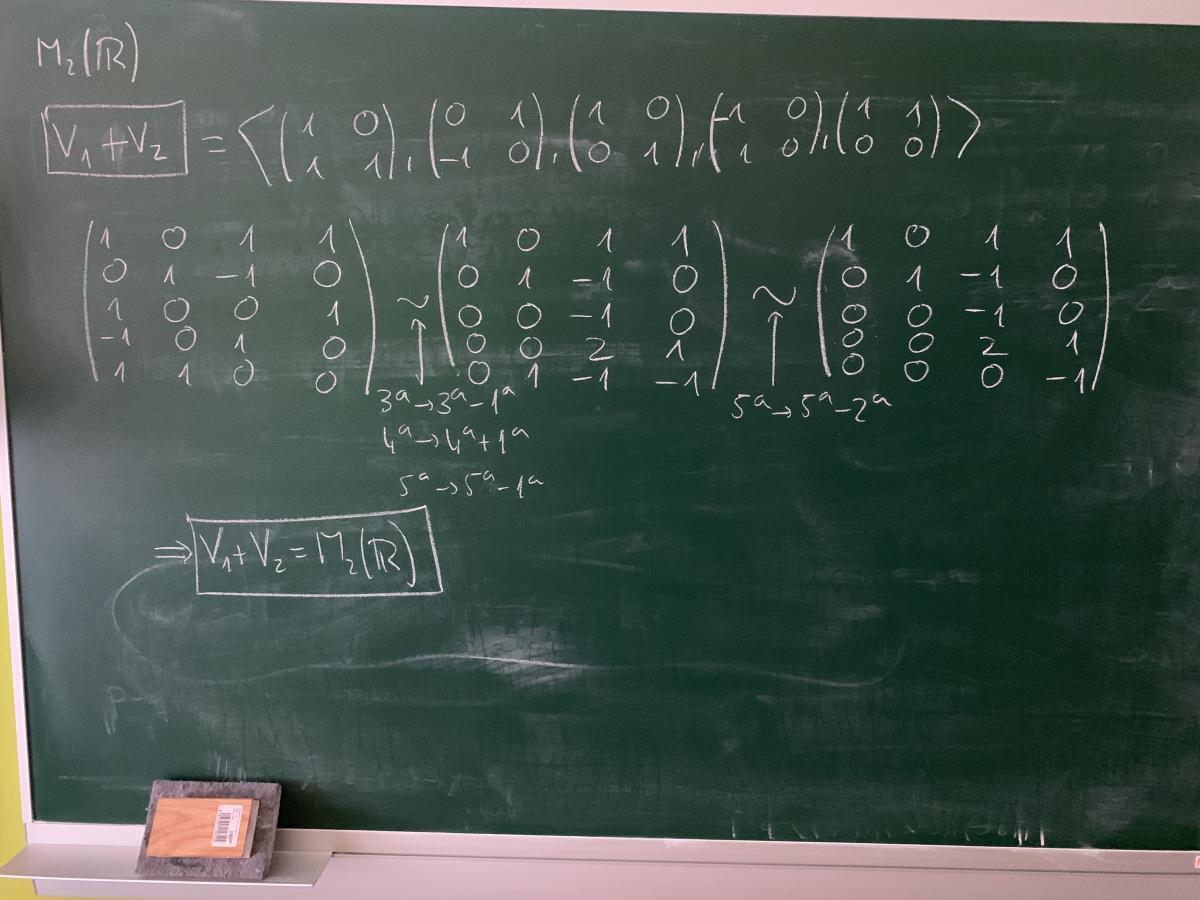 M₂(ℝ)
V₁+V₂ = ⟨(1 0; 1 1), (0 1; -1 0), (1 0; 0 1), (-1 0; 1 0), (1 1; 0 0)⟩
(1 0 1 1; 0 1 -1 0; 1 0 0 1; -1 0 1 0; 1 1 0 0) ~ (1 0 1 1; 0 1 -1 0; 0 0 -1 0; 0 0 2 1; 0 1 -1 -1) ~ (1 0 1 1; 0 1 -1 0; 0 0 -1 0; 0 0 2 1; 0 0 0 -1)
↑ ↑
3ª→3ª-1ª 5ª→5ª-2ª
4ª→4ª+1ª
5ª→5ª-1ª
⇒ V₁+V₂=M₂(ℝ)